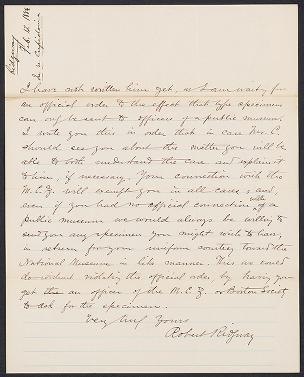 Ridgway
Feb. 21, 188
I have not written him yet, as I am waiting for
an official order to the effect that type specimens
can only be sent to officers of a public museum.
I write you this in order that in case Mr. C.
should see you about this matter you will be
able to both understand the case and explain it
to him, if necessary. Your connection with the
M.C.Z. will exempt you in all cases; and,
even if you had no official connection with a
public museum we would always be willing to
send you any specimens you might wish to have,
in return for your uniform courtesy toward the
National Museum in like manner. This we could
do without violating the official order, by having you
get an officer of the M.C.Z. or Boston Society
to ask for the specimens.
Very truly yours
Robert Ridgway